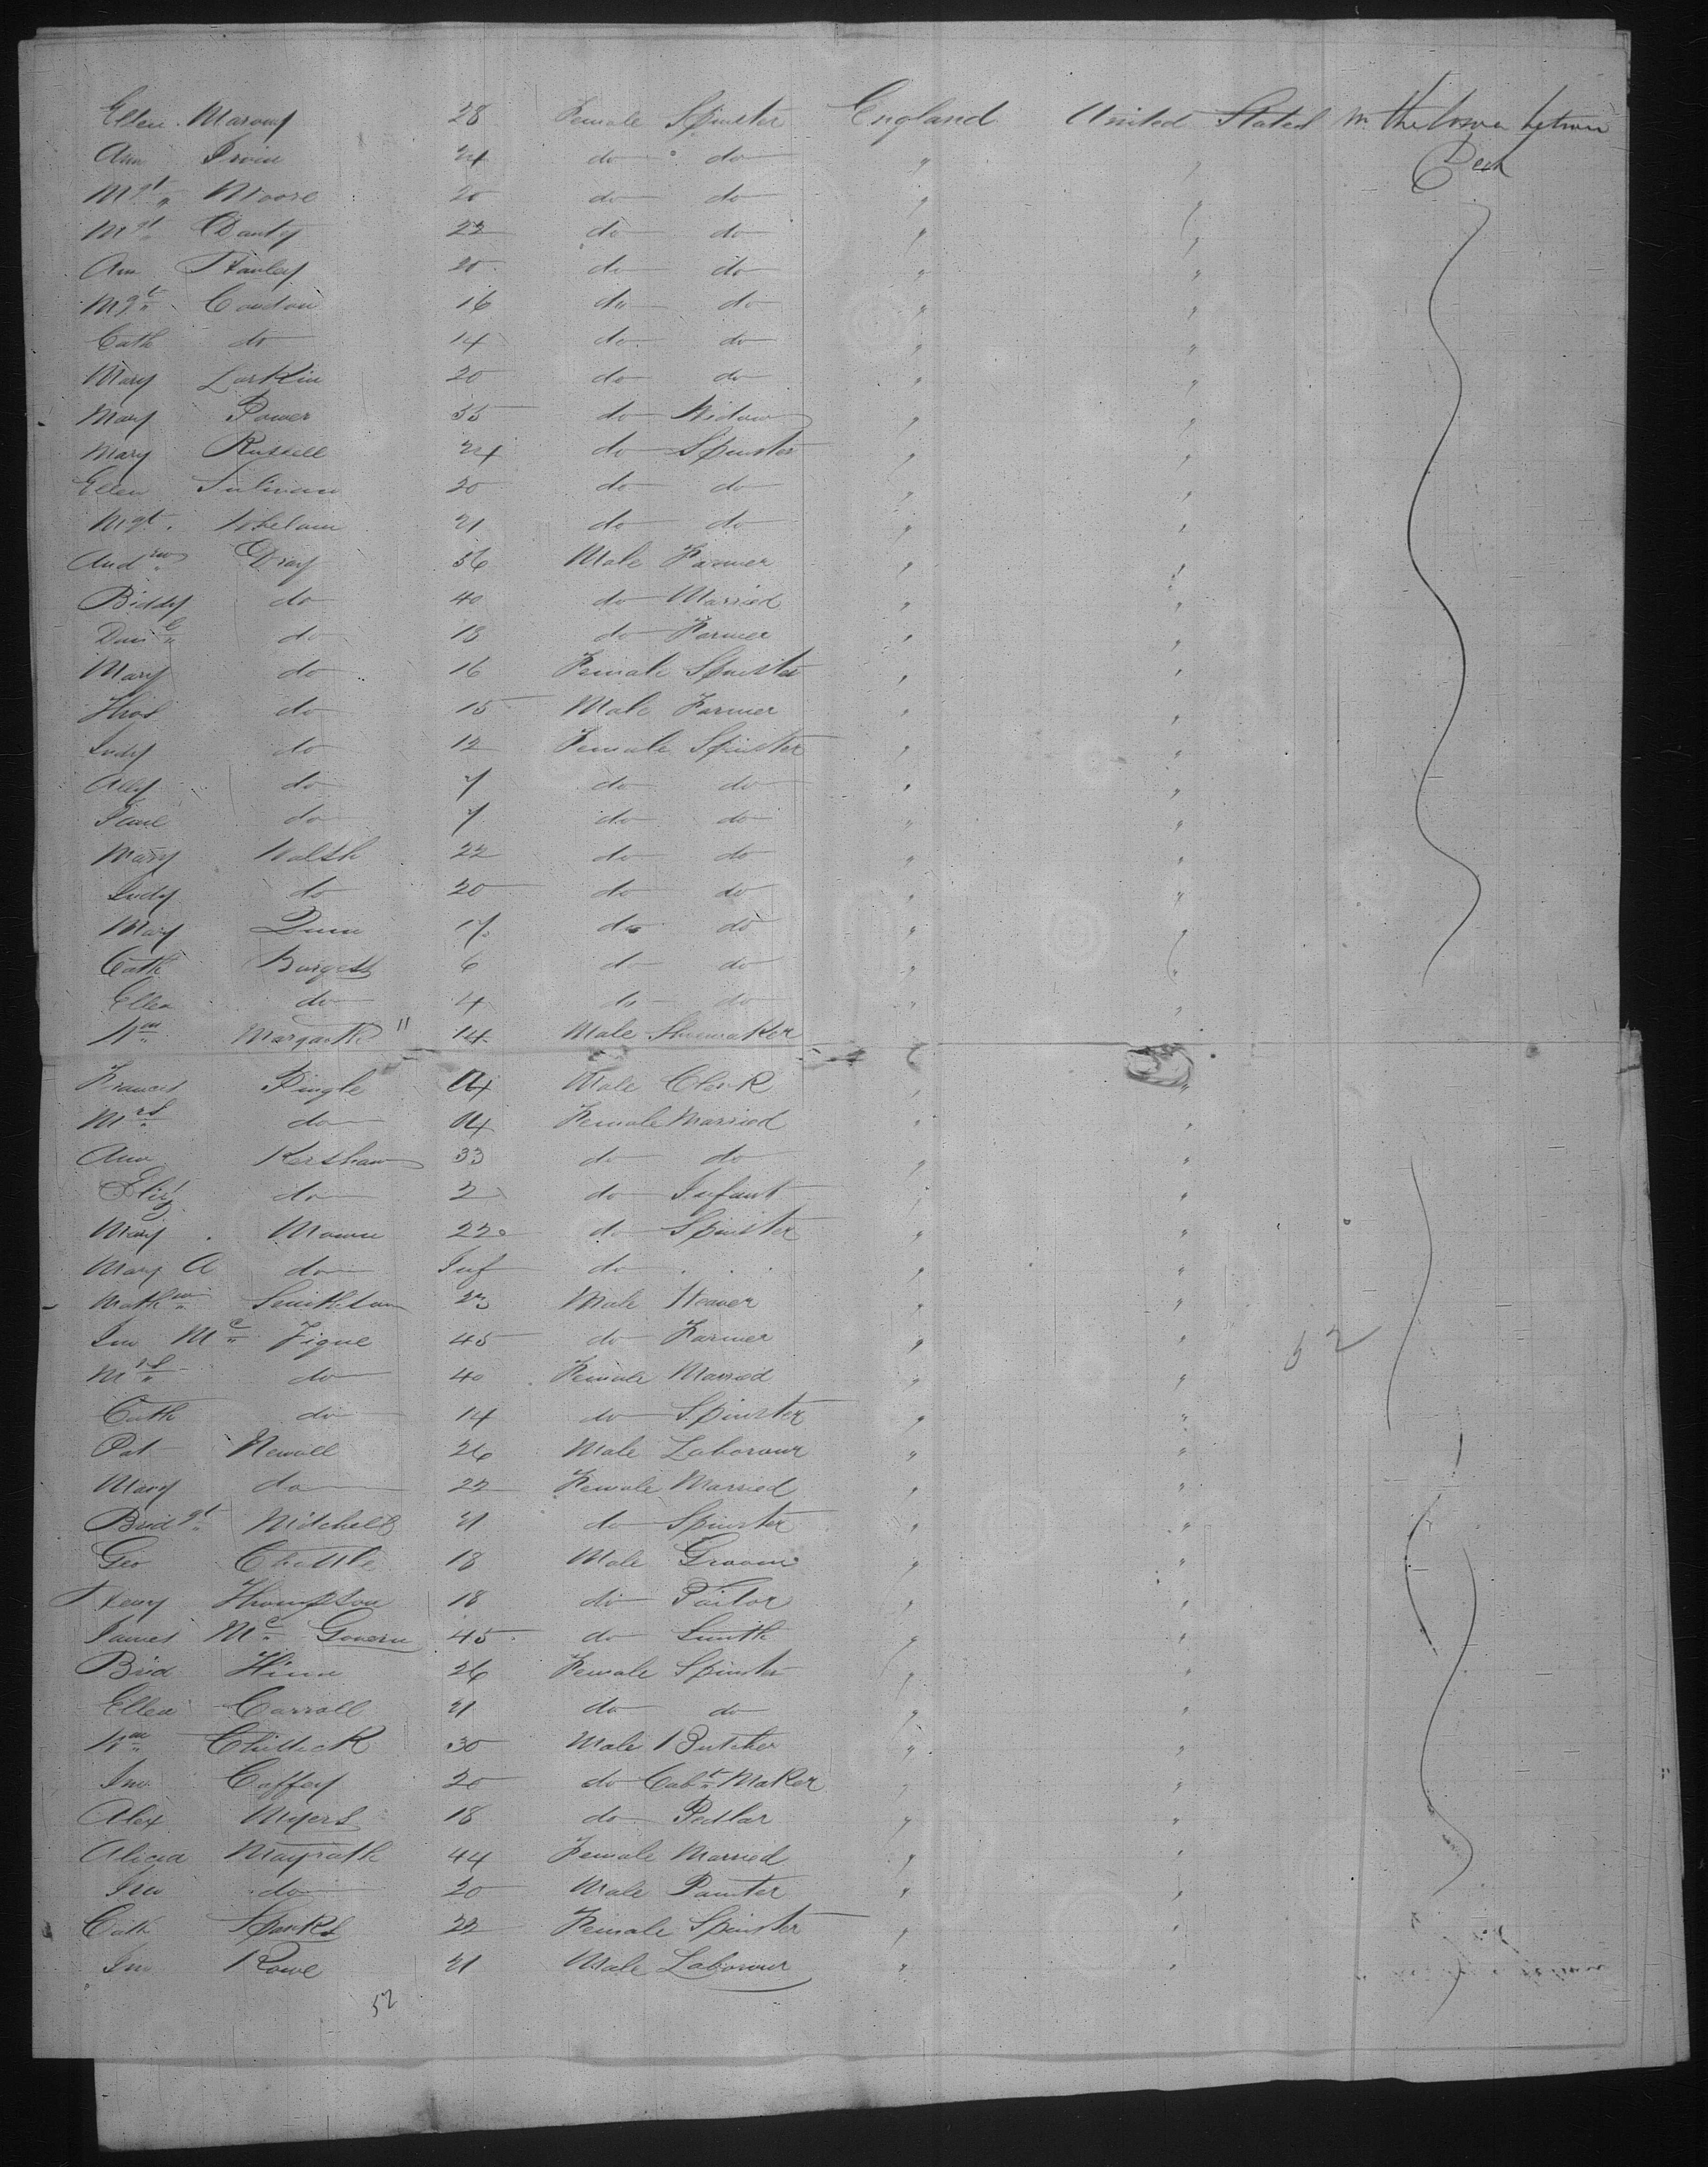 Ellen Marony 28 Female Spinster England United States In the lower between
Ann Irvin 24 do do " " Deck
Mgt Moore 20 do do " "
Mgt Danty 22 do do " "
Ann Stanley 20 do do " "
Mgt Condon 16 do do " "
Cath do 14 do do " "
Mary Larkin 20 do do " "
Mary Power 35 do Widow " "
Mary Russell 24 do Spinster " "
Ellen Sulivan 20 do do " "
Mgt Whelan 21 do do " "
Andrw Dray 56 Male Farmer " "
Biddy do 40 do Married " "
Danl do 18 do Farmer " "
Mary do 16 Female Spinster " "
Thos do 15 Male Farmer " "
Judy do 12 Female Spinster " "
Ally do 7 do do " "
do 7 do do " "
Mary Walsh 22 do do " "
Judy do 20 do do " "
Mary Quin 17 do do " "
Cath Burgess 6 do do " "
Ellen do 4 do do " "
Wm 14 Male Shoemaker
Frances Pingle Male Clerk " "
Mrs do Female Married " "
Ann Kershaw 33 do do " "
Eliz do 2 do Infant " "
Mary Mown 22 do Spinster " "
Mary A do Inf do " "
Mathw 23 Male Weaver " "
Jno Mc Tigue 45 do Farmer " "
Mrs do 40 Female Married " "
Cath do 14 do Spinster " "
Pat Newell 26 Male Labourer " "
Mary do 22 Female Married " "
Bridgt Mitchell 21 do Spinster " "
Geo 18 Male Groom " "
Henry Thompson 18 do Tailor " "
James Mc Govern 45 do Smith " "
Brid 26 Female Spinster " "
Ellen Carroll 21 do do " "
Wm Chillick 30 Male Butcher " "
Jno Coffey 20 do Cabt Maker " "
Alex Myers 18 do Pedlar " "
Alicia Mayrath 44 Female Married " "
Jno do 20 Male Painter " "
Cath Sparks 22 Female Spinster " "
Jno Rowe 21 Male Labourer " "
52
52